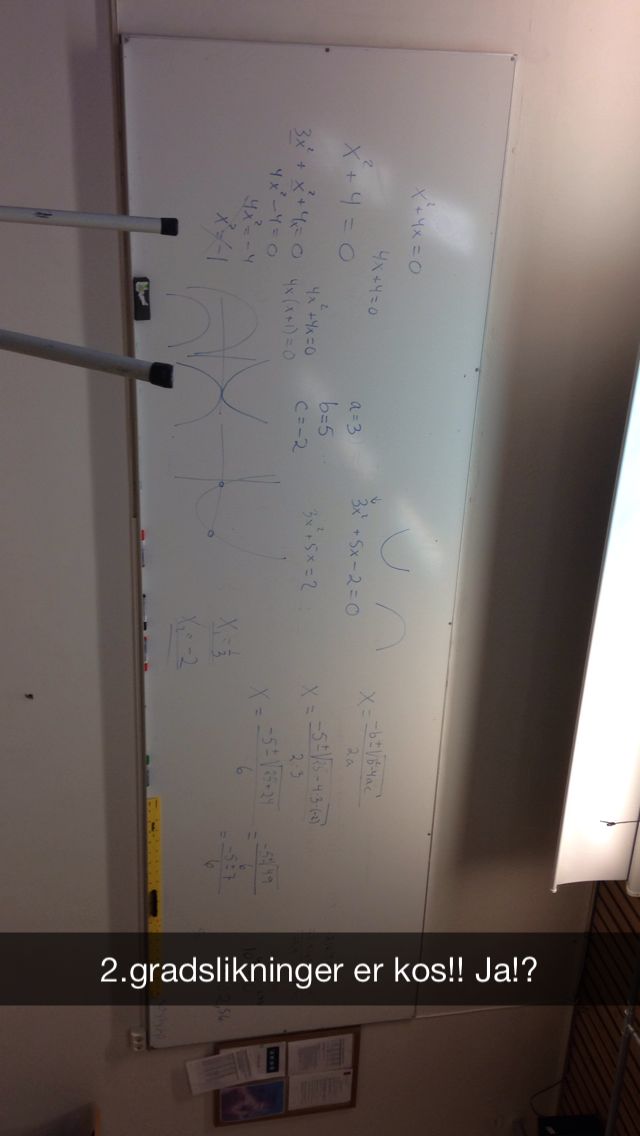 x² + 4x = 0
4x + 4 = 0
x² + 4 = 0
3x² + x² + 4x = 0
4x² - 4 = 0
4x² = -4
x² = -1
4x² + 4x = 0
4x(x+1) = 0
a = 3
b = 5
c = -2
3x² + 5x - 2 = 0
3x² + 5x = 2
x₁ = 1/3
x₂ = -2
x = (-b ± √(b² - 4ac)) / 2a
x = (-5 ± √(25 - 4·3·(-2))) / 2·3
x = (-5 ± √(25 + 24)) / 6 = (-5 ± √49) / 6
= (-5 ± 7) / 6
2.gradslikninger er kos!! Ja!?